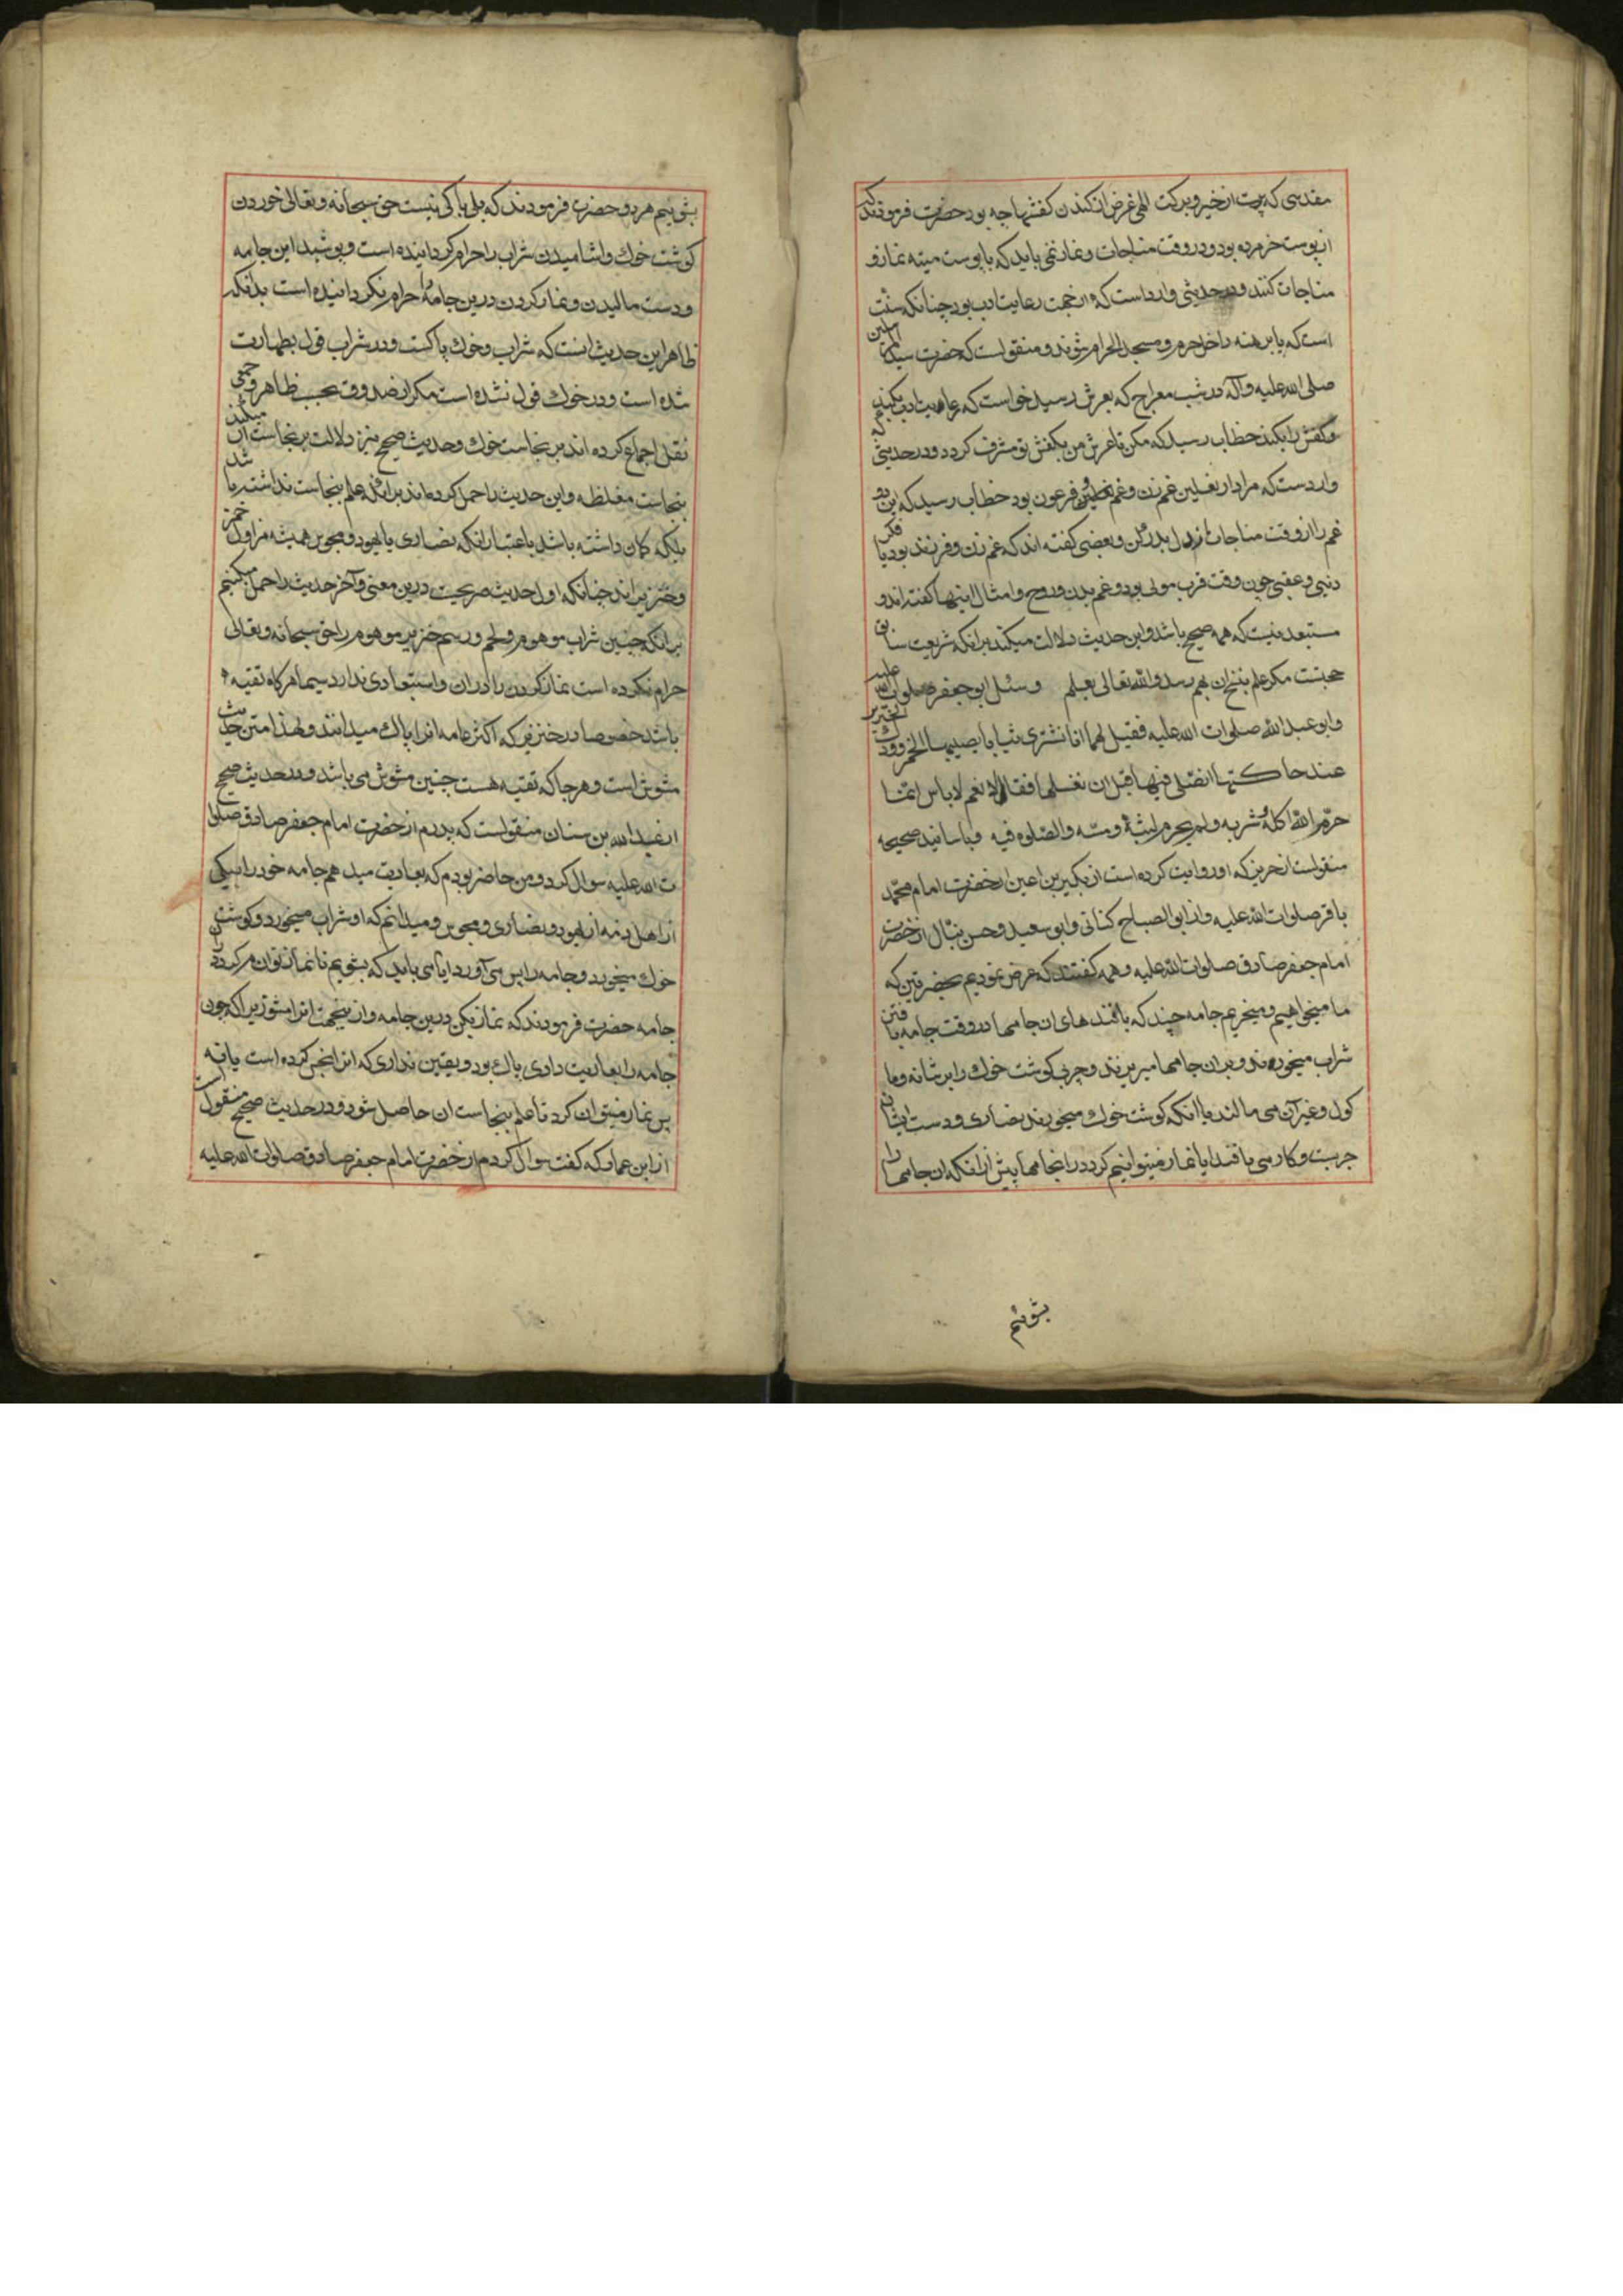 مقدسی که پرست از خیر و برکت الهی غرض از کندن کفشها چه بود حضرت فرمودند که
از پوست خر مرده بود و در وقت مناجات و نماز نمی باید که با پوست میته نماز و
مناجات کنند و در حدیثی وارد است که از جهت رعایت ادب بود چنانکه سنّت
است که پا برهنه داخل حرم و مسجد الحرام شوند و منقولست که حضرت سید المرسلین
صلی الله علیه و آله در شب معراج که بعرش رسید خواست که رعایت ادب بکند
و کفش را بکند خطاب رسید که مکن تا عرش من بکفش تو مشرف کردد و در حدیثی
وارد ست که مراد از نعلین غم زن و غم فرعون بود خطاب رسید که این دو
غم را در وقت مناجات از دل بدر کن و بعضی کفته اند که غم زن و فرزند بود یا فکر
دنیی و عقبی چون وقت قرب مولی بود و غم بدن و روح و امثال اینها کفته اند و
مستبعد نیست که همه صحیح باشد و این حدیث دلالت میکند برانکه شریعت سابق
حجتست مکر علم بنسخ ان بهم رسد والله تعالی یعلم وسئل ابو جعفر صلوات الله علیه
وابو عبد الله صلوات الله علیه فقیل لهما انا نشتری ثیابا یصیبها الخمر وودک الخنزیر
عند حاکتها انصلی فیها قبل ان نغسلها فقالا نعم لا باس انما
حرّم الله اکله و شربه ولم یحرم لبسه و مسّه والصّلوه فیه و باسانید صحیحه
منقولست از حریز که او روایت کرده است از بکیر بن اعین از حضرت امام محمّد
باقر صلوات الله علیه و از ابو الصباح کنانی و ابو سعید و حسن نبّال از حضرت
امام جعفر صادق صلوات الله علیه و همه کفتند که عرض نمودیم بحضرتین که
ما میخواهیم و میخریم جامه چند که بافند های ان جامها در وقت جامه بافتن
شراب میخورند و بران جامها میریزند و چربی کوشت خوک را بر شانه و ما
کول و غیر آن می مالند با انکه کوشت خوک میخورند نصاری و دست ایشان
چربست و کار می بافند ایا نماز میتوانیم کرد در انجامها پیش از انکه ان جامها را
بشوئیم
بشوییم هر دو حضرت فرمودند که بلی باکی نیست حق سبحانه و تعالی خوردن
کوشت خوک و اشامیدن شراب را حرام کردانیده است و پوشید این جامه
و دست مالیدن و نماز کردن درین جامه را حرام نکردانیده است بدانکه
ظاهر این حدیث انست که شراب و خوک پاکست و در شراب قول بطهارت
شده است و در خوک قول نشده است مکر از صدوق بحسب ظاهر و جمعی
نقل اجماع کرده اند بر نجاست خوک و حدیث صحیح نیز دلالت بر نجاست ان میکند
بنجاست مغلظه و این حدیث را حمل کرده اند برانکه علم بنجاست نداشته باشد
بلکه کمان داشته باشد باعتبار انکه نصاری یا یهود و مجوس همیشه مزاول خمر
و خنزیر اند چنانکه اول حدیث صریحست درین معنی و آخر حدیث را حمل میکنیم
برانکه چنین شراب موهوم و لحم و رسم خنزیر موهوم را حق سبحانه و تعالی
حرام نکرده است نماز کردن را دران و استبعادی ندارد سیما هرکاه تقیه
باشد خصوصا در خنزیر که اکثر عامه انرا پاک میدانند و لهذا متن حدیث
مشوش است و هرجا که تقیه هست چنین مشوش می باشد و در حدیث صحیح
از عبد الله بن سنان منقولست که پدرم از حضرت امام جعفر صادق صلوا
ت الله علیه سوال کرد و من حاضر بودم که بعاریت میدهم جامه خود را بیکی
از اهل ذمه از یهود و نصاری و مجوس و میدانم که او شراب میخورد و کوشت
خوک میخورد و جامه را پس می آورد ایا می باید که بشویم تا نماز توانم کرد دران
جامه حضرت فرمودند که نماز بکن درین جامه و از ینجهت انرا مشو زیرا که چون
جامه را بعاریت دادی پاک بود و یقین نداری که انرا نجس کرده است یا نه
پس نماز میتوان کرد تا علم بنجاست ان حاصل شود و در حدیث صحیح منقولست
از ابن عمار که کفت سوال کردم از حضرت امام جعفر صادق صلوات الله علیه